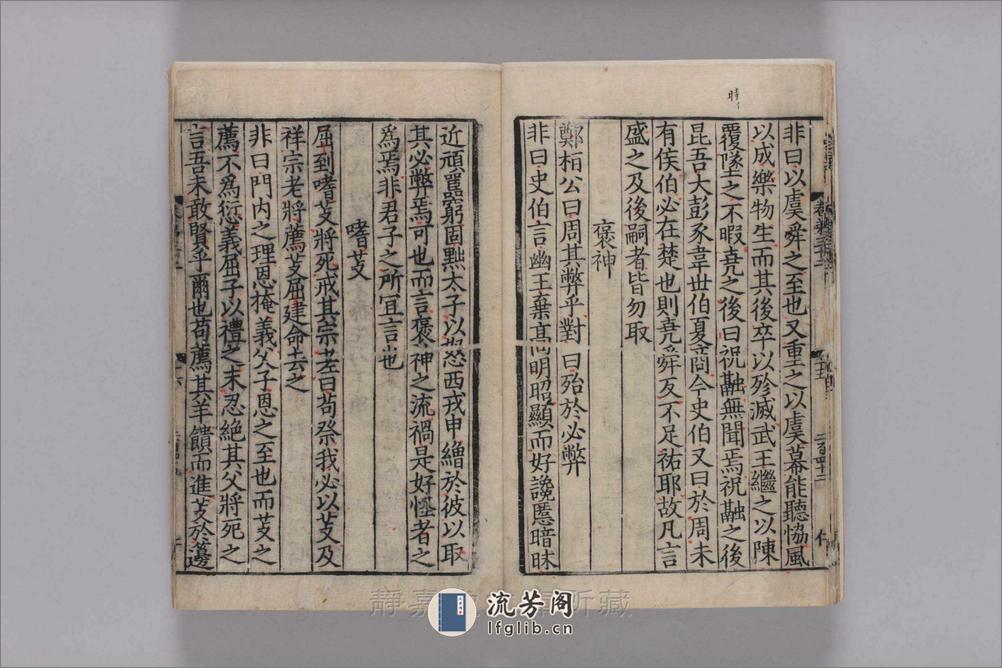 時
非曰以虞舜之至也又重之以虞幕能聽恊風
以成樂物生而其後卒以殄滅武王繼之以陳
覆墜之不暇堯之後曰祝融無聞焉祝融之後
昆吾大彭豕韋世伯夏商今史伯又曰於周未
有侯伯必在楚也則堯舜反不足祐耶故凡言
盛之及後嗣者皆勿取
褒神
鄭桓公曰周其弊乎對曰殆於必弊
非曰史伯言幽王棄高明昭顯而好讒慝暗昧
近頑嚚窮固黜太子以怒西戎申繒於彼以取
其必弊焉可也而言褒神之流禍是好怪者之
為焉非君子之所宜言也
嗜芰
屈到嗜芰將死戒其宗老曰苟祭我必以芰及
祥宗老將薦芰屈建命去之
非曰門內之理恩掩義父子恩之至也而芰之
薦不為愆義屈子以禮之末忍絕其父將死之
言吾未敢賢乎爾也苟薦其羊饋而進芰於籩
靜嘉 所藏
流芳阁
lfglib.cn